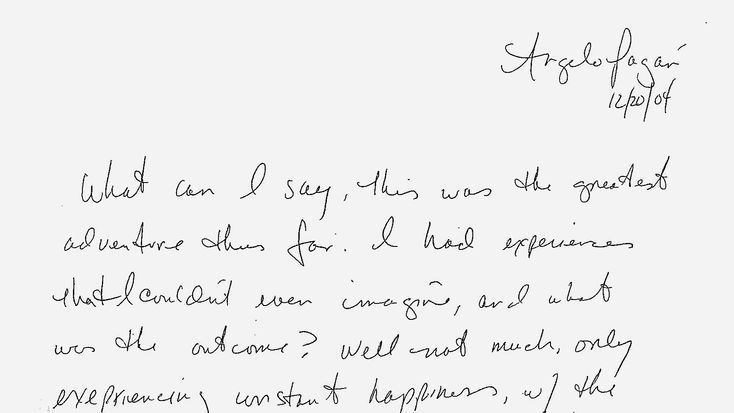 Angelo Pagán
12/20/04
What can I say, this was the greatest
adventure thus far. I had experiences
that I couldn't even imagine, and what
was the outcome? Well not much, only
exepriencing constant happiness, w/ the